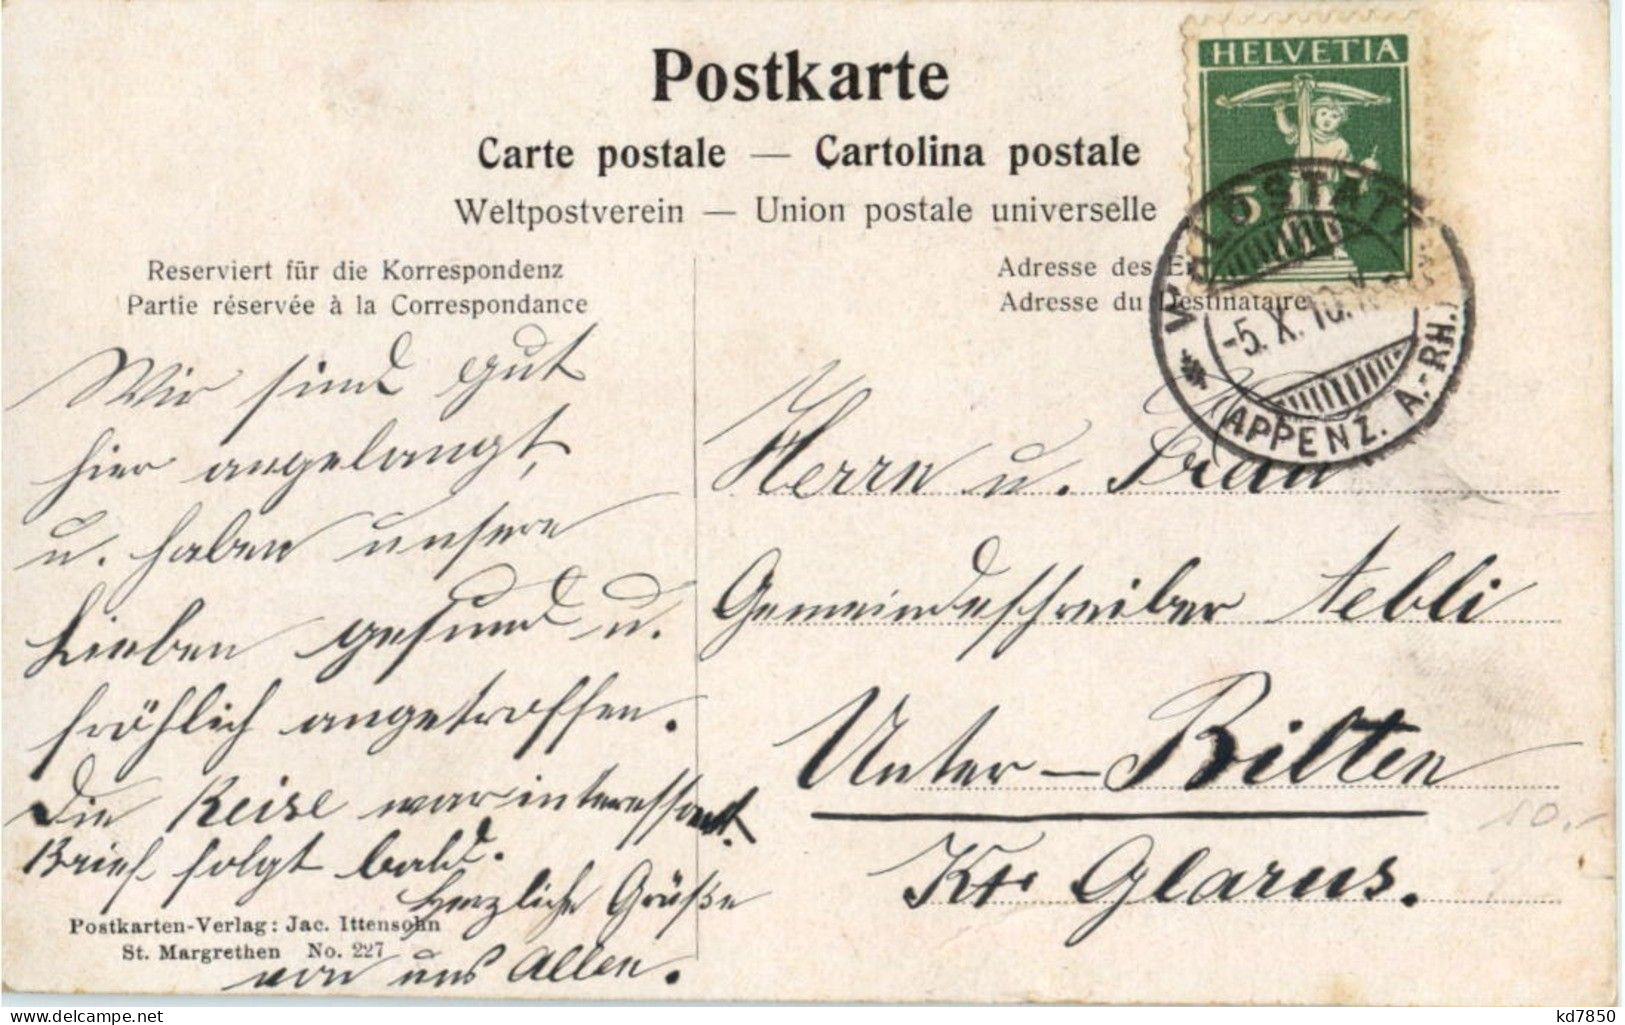 Postkarte
Carte postale — Cartolina postale
Weltpostverein — Union postale universelle
HELVETIA
5
WALDSTATT
-5.X.10.
(APPENZ. A.-RH.)
Reserviert für die Korrespondenz
Partie réservée à la Correspondance
Adresse des E
Adresse du Destinataire
Wir sind gut
hier angelangt,
u. haben unsere
Lieben gesund u.
fröhlich angetroffen.
Die Reise war interessant.
Brief folgt bald.
Herzliche Grüße
von uns Allen.
Herrn u. Frau
Gemeindeschreiber Aebli
Unter-Bilten
Kt. Glarus.
10.-
Postkarten-Verlag: Jac. Ittensohn
St. Margrethen No. 227
www.delcampe.net
kd7850